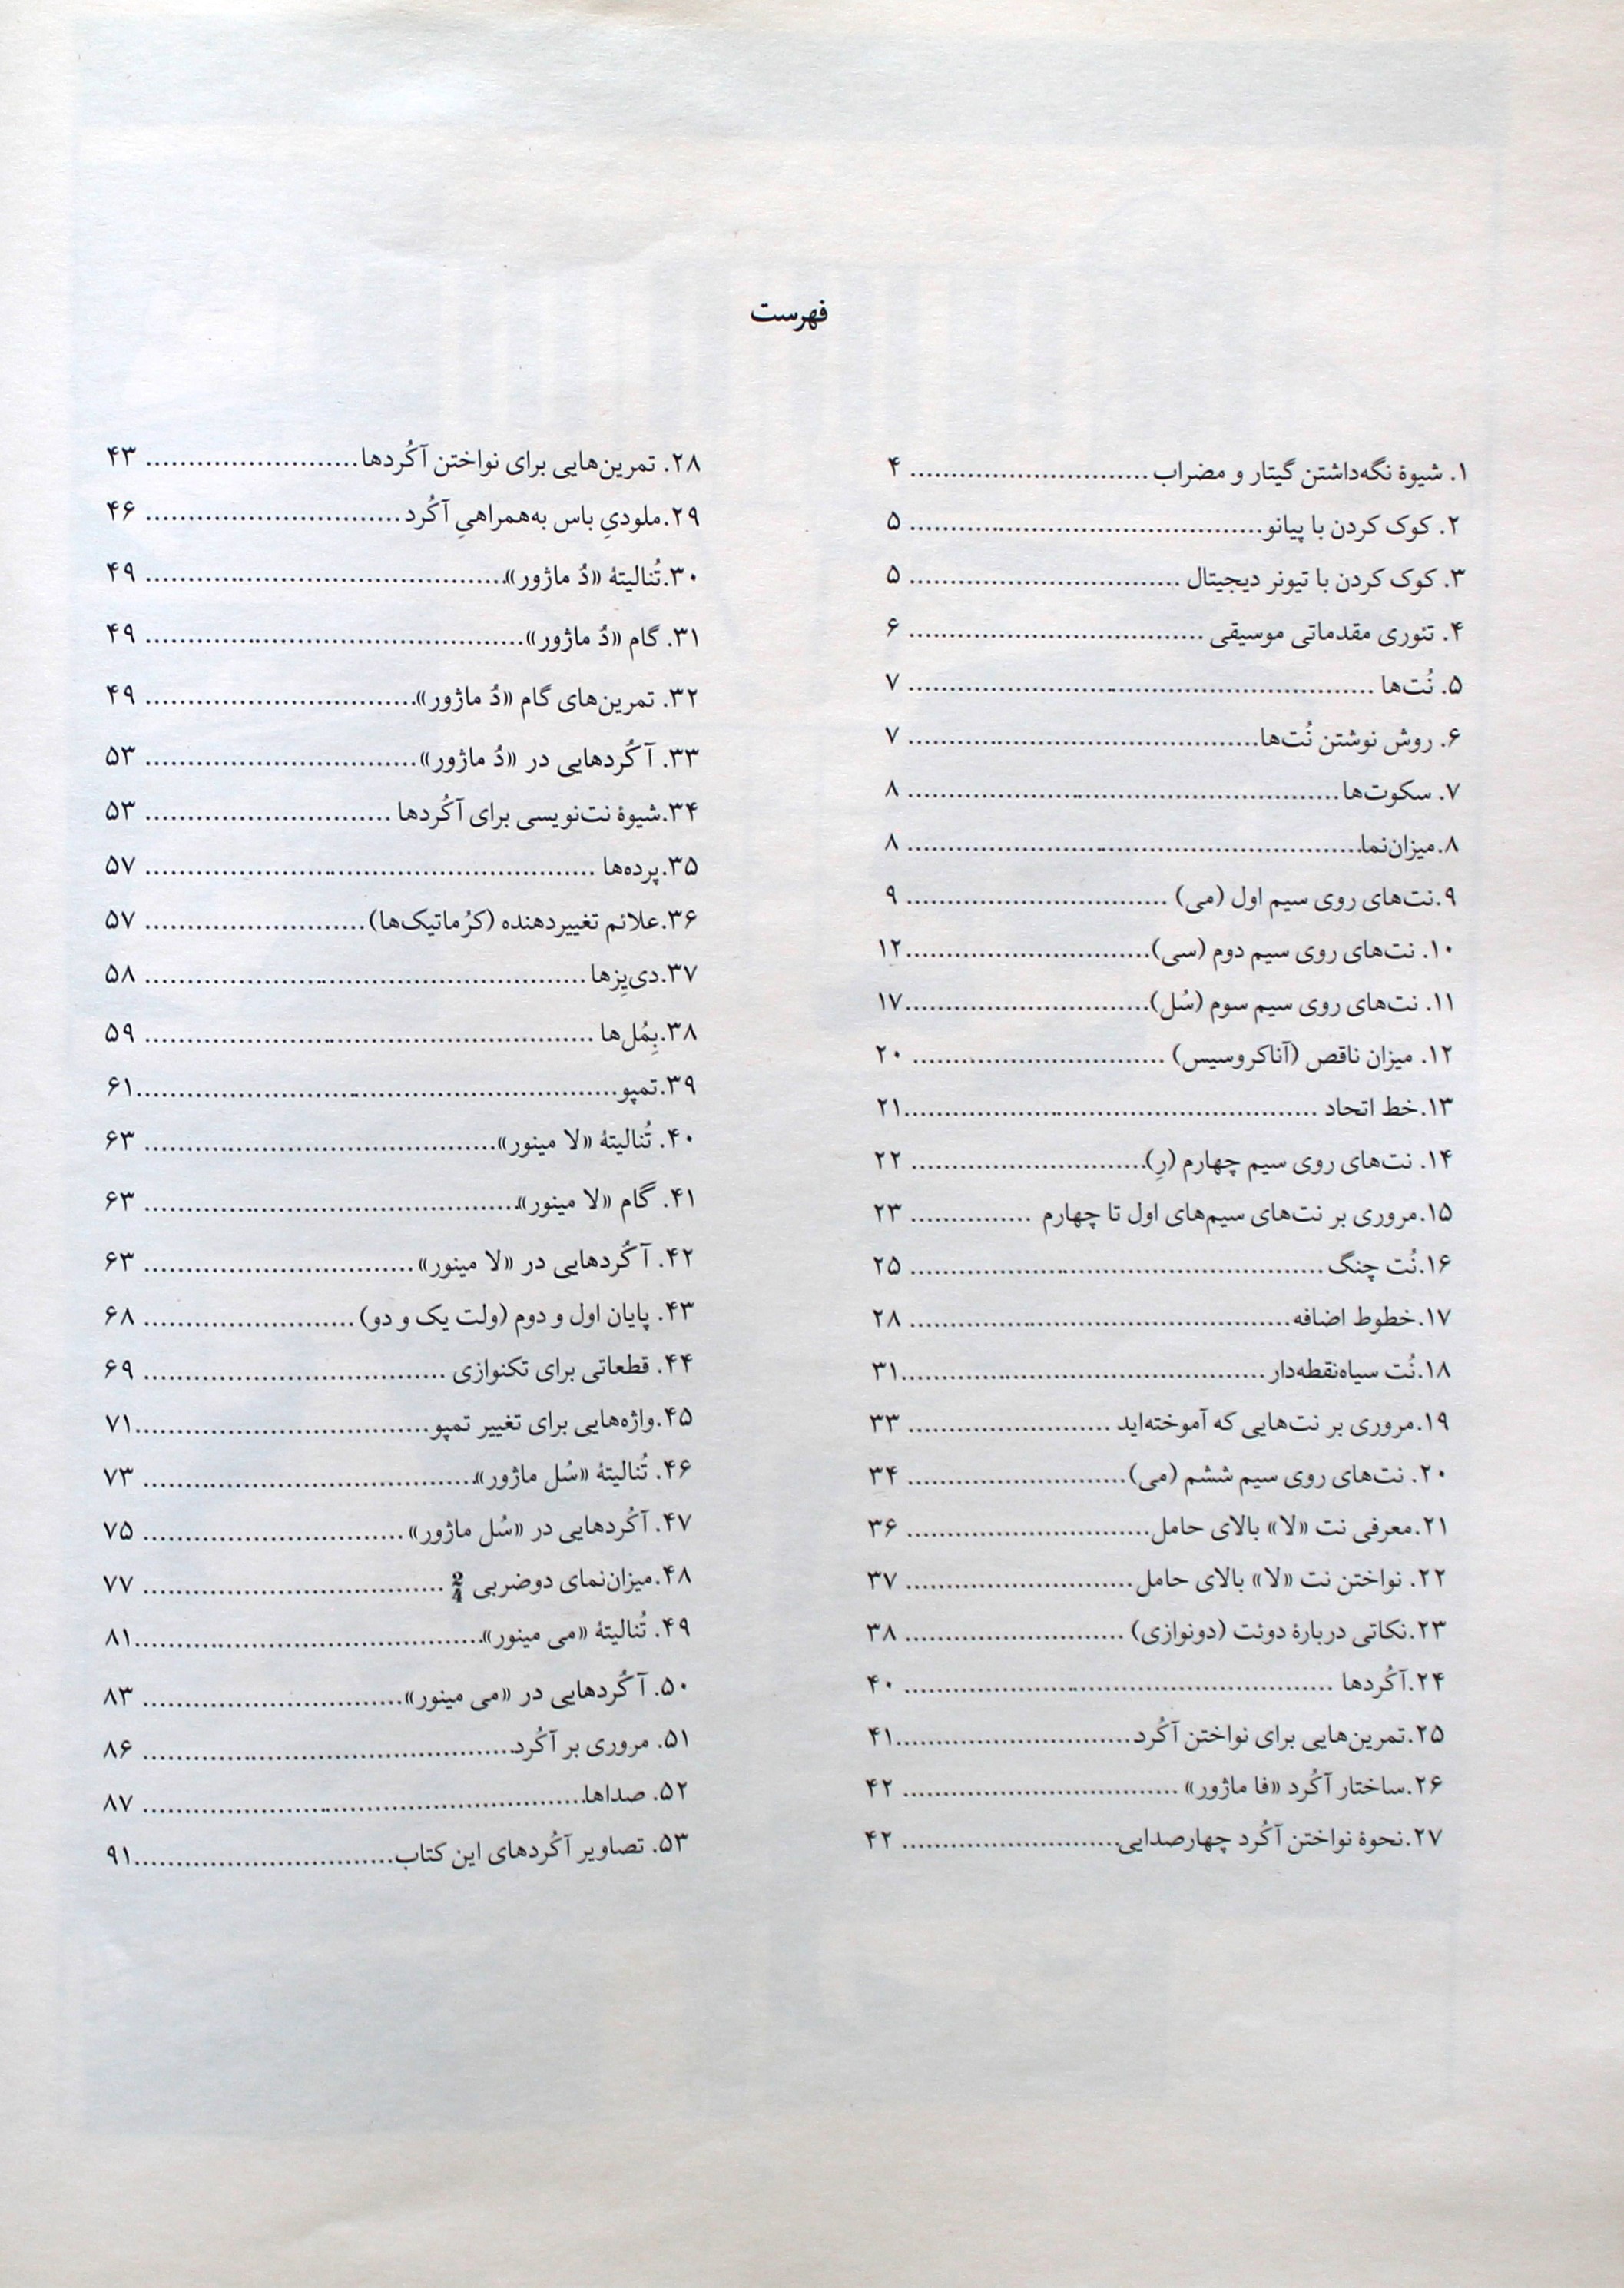 فهرست
۱. شیوهٔ نگه‌داشتن گیتار و مضراب ............................. ۴
۲. کوک کردن با پیانو........................................... ۵
۳. کوک کردن با تیونر دیجیتال ................................. ۵
۴. تئوری مقدماتی موسیقی .................................... ۶
۵. نُت‌ها ......................................................... ۷
۶. روش نوشتن نُت‌ها........................................... ۷
۷. سکوت‌ها..................................................... ۸
۸.میزان‌نما....................................................... ۸
۹.نت‌های روی سیم اول (می) ................................ ۹
۱۰. نت‌های روی سیم دوم (سی)..............................۱۲
۱۱. نت‌های روی سیم سوم (سُل)..............................۱۷
۱۲. میزان ناقص (آناکروسیس) ............................... ۲۰
۱۳.خط اتحاد ..................................................۲۱
۱۴. نت‌های روی سیم چهارم (رِ)............................. ۲۲
۱۵.مروری بر نت‌های سیم‌های اول تا چهارم ............... ۲۳
۱۶.نُت چنگ................................................... ۲۵
۱۷.خطوط اضافه............................................... ۲۸
۱۸.نُت سیاه‌نقطه‌دار............................................۳۱
۱۹.مروری بر نت‌هایی که آموخته‌اید ......................... ۳۳
۲۰. نت‌های روی سیم ششم (می)........................... ۳۴
۲۱.معرفی نت «لا» بالای حامل.............................. ۳۶
۲۲. نواختن نت «لا» بالای حامل............................ ۳۷
۲۳.نکاتی دربارهٔ دوئت (دونوازی) ........................... ۳۸
۲۴.آکُردها ..................................................... ۴۰
۲۵.تمرین‌هایی برای نواختن آکُرد.............................۴۱
۲۶.ساختار آکُرد «فا ماژور» .................................. ۴۲
۲۷.نحوهٔ نواختن آکُرد چهارصدایی........................... ۴۲
۲۸. تمرین‌هایی برای نواختن آکُردها.......................... ۴۳
۲۹.ملودیِ باس به‌همراهیِ آکُرد............................... ۴۶
۳۰.تُنالیتهٔ «دُ ماژور»............................................ ۴۹
۳۱. گام «دُ ماژور».............................................. ۴۹
۳۲. تمرین‌های گام «دُ ماژور»................................. ۴۹
۳۳. آکُردهایی در «دُ ماژور»................................. ۵۳
۳۴.شیوهٔ نت‌نویسی برای آکُردها .............................. ۵۳
۳۵.پرده‌ها ...................................................... ۵۷
۳۶.علائم تغییردهنده (کرُماتیک‌ها)........................... ۵۷
۳۷.دی‌یِزها...................................................... ۵۸
۳۸.بِمُل‌ها ....................................................... ۵۹
۳۹.تمپو...........................................................۶۱
۴۰. تُنالیتهٔ «لا مینور»........................................... ۶۳
۴۱. گام «لا مینور»............................................. ۶۳
۴۲. آکُردهایی در «لا مینور»................................. ۶۳
۴۳. پایان اول و دوم (ولت یک و دو).......................... ۶۸
۴۴. قطعاتی برای تکنوازی .................................... ۶۹
۴۵.واژه‌هایی برای تغییر تمپو....................................۷۱
۴۶. تُنالیتهٔ «سُل ماژور»........................................ ۷۳
۴۷. آکُردهایی در «سُل ماژور»................................ ۷۵
۴۸.میزان‌نمای دوضربی 2/4 ..................................... ۷۷
۴۹. تُنالیتهٔ «می مینور»..........................................۸۱
۵۰. آکُردهایی در «می مینور»................................ ۸۳
۵۱. مروری بر آکُرد............................................. ۸۶
۵۲. صداها...................................................... ۸۷
۵۳. تصاویر آکُردهای این کتاب................................۹۱